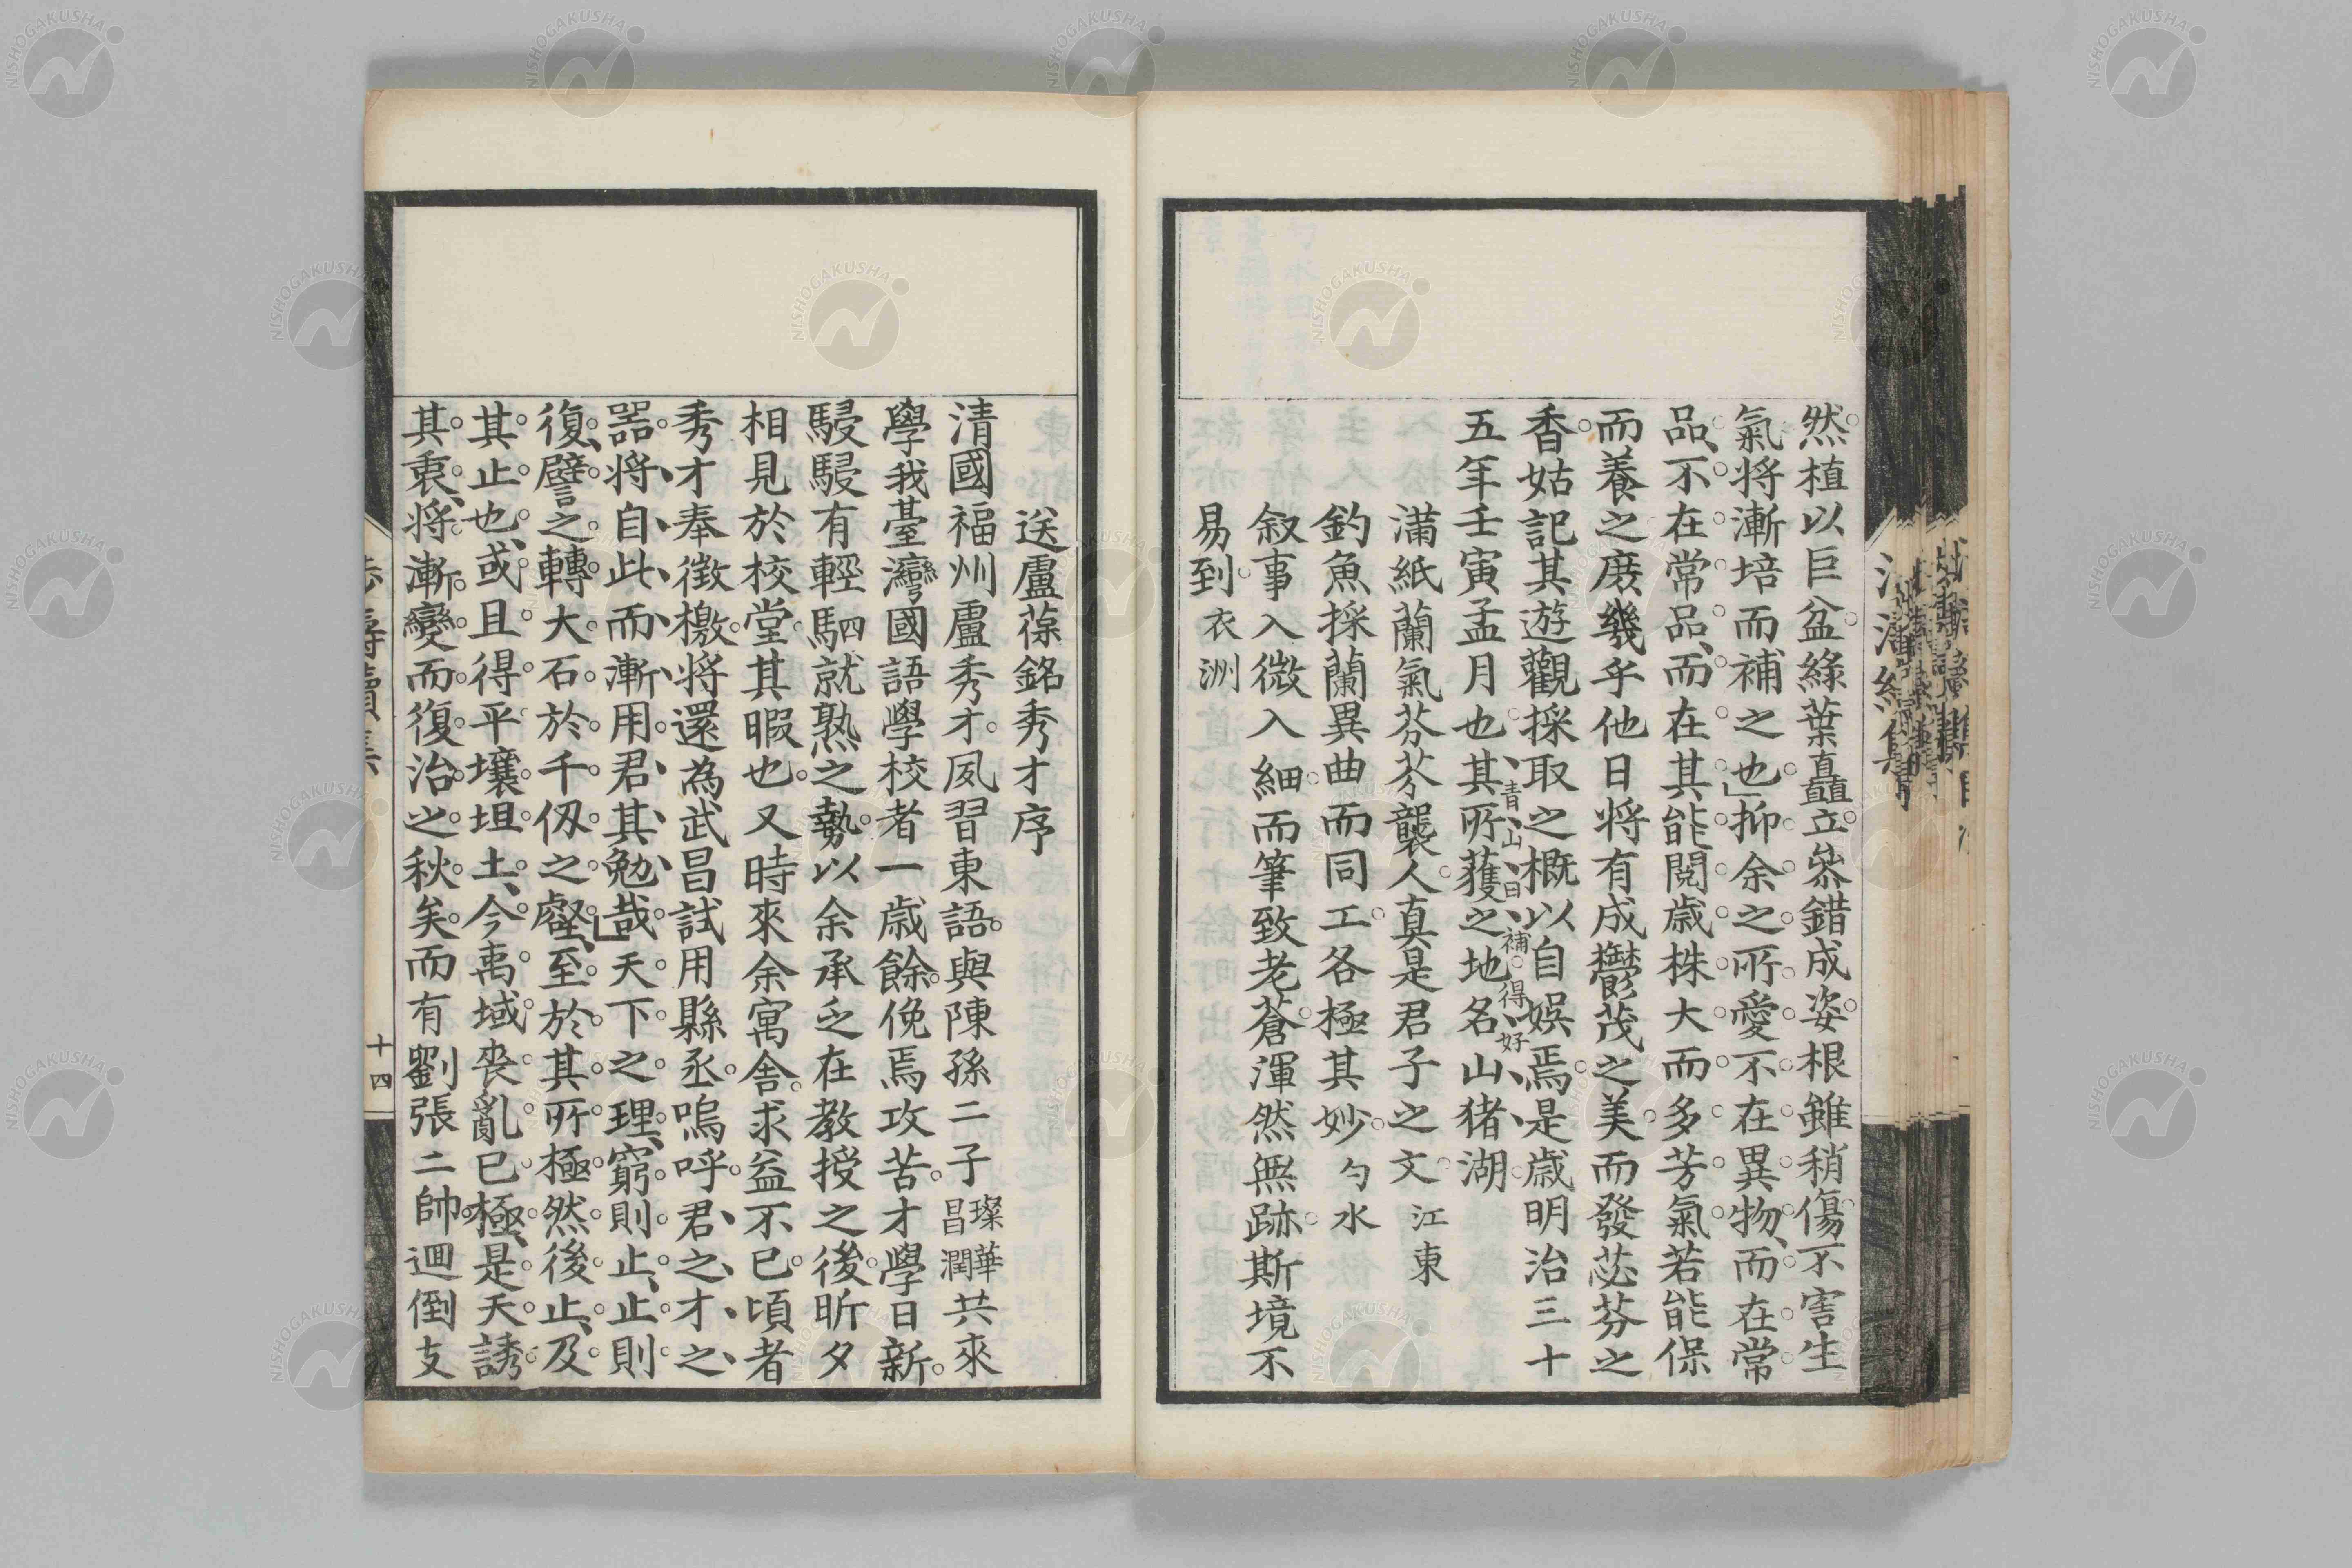 然植以巨盆綠葉矗立叅錯成姿根雖稍傷不害生
氣将漸培而補之也抑余之所愛不在異物而在常
品不在常品而在其能閱歳株大而多芳氣若能保
而養之庻幾乎他日将有成鬱茂之美而發苾芬之
香姑記其遊觀採取之概以自娯焉是歳明治三十
青山日補得好
五年壬寅孟月也其所獲之地名山猪湖
滿紙蘭氣芬芬襲人真是君子之文 江東
釣魚採蘭異曲而同工各極其妙 勺水
叙事入微入細而筆致老蒼渾然無跡斯境不
易到 衣洲
送盧葆銘秀才序
清國福州盧秀才夙習東語與陳孫二子璨華昌潤共來
學我臺灣國語學校者一歳餘俛焉攻苦才學日新
駸駸有輕駟就熟之勢以余承乏在教授之後昕夕
相見於校堂其暇也又時來余寓舎求益不已頃者
秀才奉徴檄将還為武昌試用縣丞嗚呼君之才之
噐将自此而漸用君其勉哉天下之理窮則止止則
復譬之轉大石於千仭之壑至於其所極然後止及
其止也或且得平壤坦土今禹域喪亂已極是天誘
其衷将漸變而復治之秋矣而有劉張二帥迴倒支
十四
NISHOGAKUSHA